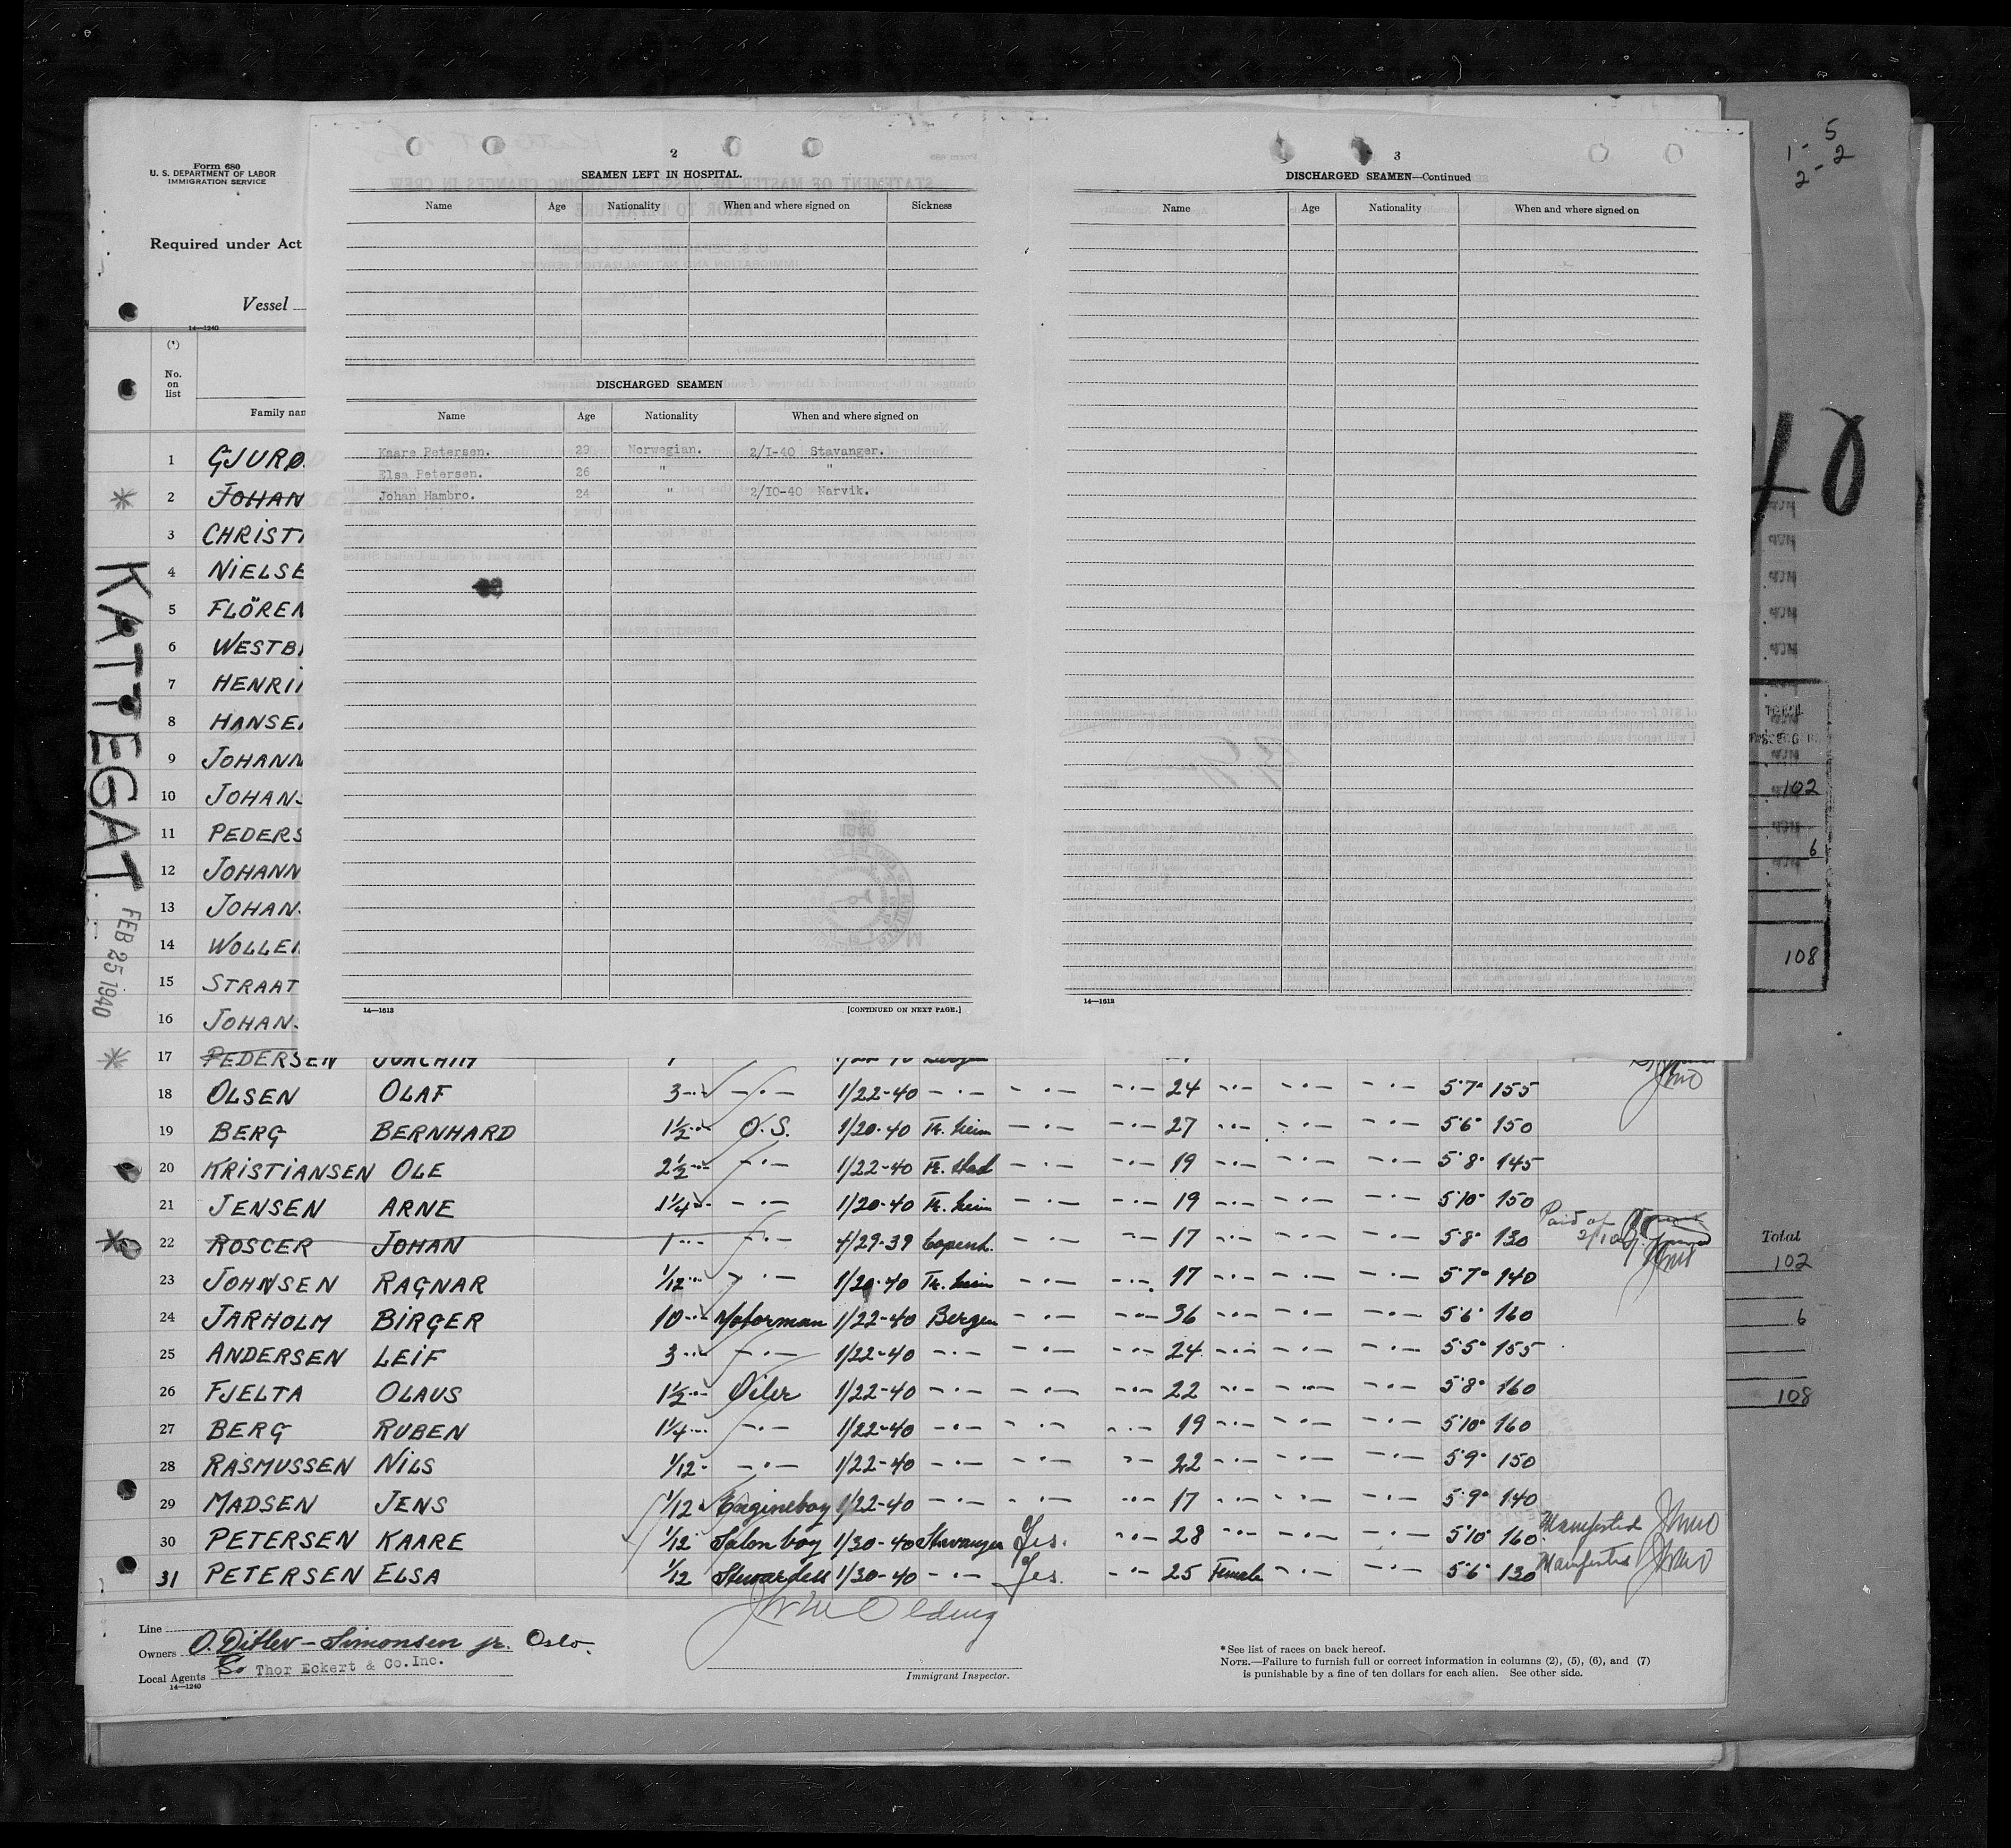 5
1 - 2
2 -
Form 680
U. S. DEPARTMENT OF LABOR
IMMIGRATION SERVICE
Required under Act
Vessel
14—1240
(*)
No.
on
list
Family nam
2
SEAMEN LEFT IN HOSPITAL.
Name Age Nationality When and where signed on Sickness
DISCHARGED SEAMEN
Name Age Nationality When and where signed on
Kaare Petersen. 29 Norwegian. 2/I-40 Stavanger.
Elsa Petersen. 26 " "
Johan Hambro. 24 " 2/IO-40 Narvik.
14—1613 [CONTINUED ON NEXT PAGE.]
3
DISCHARGED SEAMEN—Continued
Name Age Nationality When and where signed on
14—1613
KATTEGAT
FEB 25 1940
1 GJURØ
2 JOHAN
3 CHRISTI
4 NIELSE
5 FLÖREN
6 WESTB
7 HENRI
8 HANSE
9 JOHANN
10 JOHANS
11 PEDERS
12 JOHANN
13 JOHANS
14 WOLLE
15 STRAAT
16 JOHANS
17 PEDERSEN JOACHIM
18 OLSEN OLAF 3 -·- — · — 1/22-40 — · — — · — -·- 24 -·- — · — — · — 5'7" 155
19 BERG BERNHARD 1½ -·- O.S. 1/20-40 Tr. heim — · — -·- 27 -·- — · — — · — 5'6" 150
20 KRISTIANSEN OLE 2½ -·- — · — 1/22-40 Fr. stad — · — -·- 19 -·- — · — — · — 5'8" 145
21 JENSEN ARNE 1¼ -·- — · — 1/20-40 Tr. heim — · — -·- 19 -·- — · — — · — 5'10" 150
22 ROSCER JOHAN 1 -·- — · — 4/29-39 Copenh. — · — -·- 17 -·- — · — — · — 5'8" 130 Paid of
23 JOHNSEN RAGNAR 1/12 -·- — · — 1/20-40 Tr. heim — · — -·- 17 -·- — · — — · — 5'7" 140
24 JARHOLM BIRGER 10 -·- Motorman 1/22-40 Bergen — · — -·- 36 -·- — · — — · — 5'6" 160
25 ANDERSEN LEIF 3 -·- — · — 1/22-40 — · — — · — -·- 24 -·- — · — — · — 5'5" 155
26 FJELTA OLAUS 1½ -·- Oiler 1/22-40 — · — — · — -·- 22 -·- — · — — · — 5'8" 160
27 BERG RUBEN 1¼ -·- — · — 1/22-40 — · — — · — -·- 19 -·- — · — — · — 5'10" 160
28 RASMUSSEN NILS 1/12 - — · — 1/22-40 — · — — · — -·- 22 -·- — · — — · — 5'9" 150
29 MADSEN JENS 1/12 Engineboy 1/22-40 — · — — · — -·- 17 -·- — · — — · — 5'9" 140
30 PETERSEN KAARE 1/12 Salon boy 1/30-40 Stavanger Yes. -·- 28 -·- — · — — · — 5'10" 160 Manifested
31 PETERSEN ELSA 1/12 Stewardess 1/30-40 — · — Yes. -·- 25 Female — · — — · — 5'6" 130 Manifested
Line
Owners O. Ditlev-Simonsen jr. Oslo.
Local Agents Thor Eckert & Co. Inc.
14—1240
Immigrant Inspector.
*See list of races on back hereof.
NOTE.—Failure to furnish full or correct information in columns (2), (5), (6), and (7)
is punishable by a fine of ten dollars for each alien. See other side.
40
102
6
108
Total
102
6
108